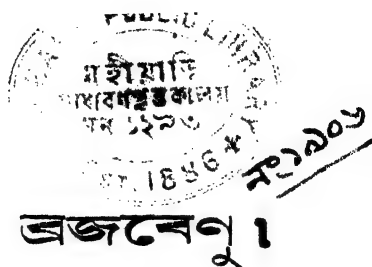 PUBLIC LIBRARY
মহীয়াড়ি
সাধারণ পুস্তকালয়
সন ১২৯৩
1886 *
নং ১৯০৬
ব্রজবেণু।